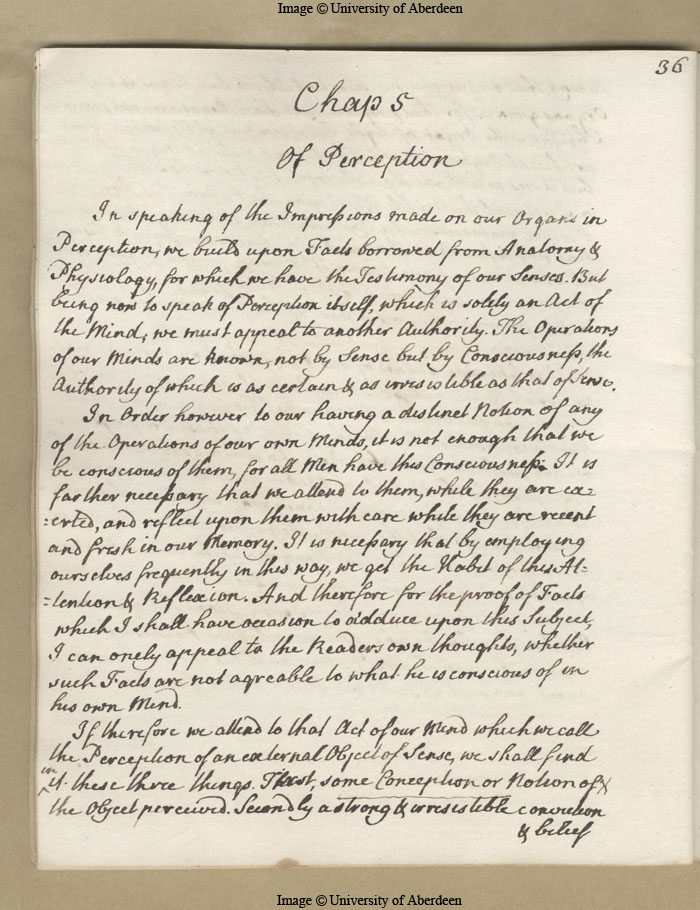 Image © University of Aberdeen
36
Chap 5
Of Perception
In speaking of the Impressions made on our Organs in
Perception, we build upon Facts borrowed from Anatomy &
Physiology, for which we have the Testimony of our Senses. But
being now to speak of Perception itself, which is solely an Act of
the Mind, we must appeal to another Authority. The Operations
of our Minds are known, not by Sense but by Consciousness, the
Authority of which is as certain & as irresistible as that of Sense.
In Order however to our having a distinct Notion of any
of the Operations of our own Minds, it is not enough that we
be conscious of them, for all Men have this Consciousness. It is
farther necessary that we attend to them, while they are ex=
=erted, and reflect upon them with care while they are recent
and fresh in our Memory. It is necessary that by employing
ourselves frequently in this way, we get the Habit of this At=
=tention & Reflexion. And therefore for the proof of Facts
which I shall have occasion to adduce upon this Subject,
I can onely appeal to the Readers own thoughts, whether
such Facts are not agreable to what he is conscious of in
his own Mind.
If therefore we attend to that Act of our Mind which we call
the Perception of an external Object of Sense, we shall find
in it these three things. First, some Conception or Notion of
the Object perceived. Secondly a strong & irresistible conviction
& belief
Image © University of Aberdeen